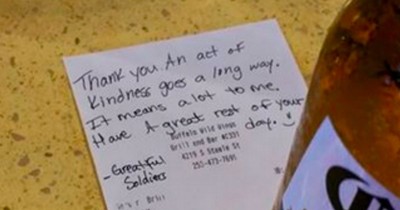 Thank you. An act of
kindness goes a long way.
It means a lot to me.
Have A great rest of your
day.
Buffalo Wild Wings
Grill and Bar
4219 S Steele St
253-473-7691
-Greatful
Soldiers